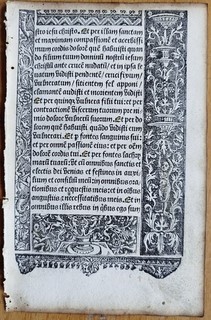 sto iesu christo. Et per illam sanctam
et maximam compassionē et acerbissi
mum cordis dolorē quē habuisti quan
do filium tuum dominū nostrū iesum
christū ante crucē nudatū: et in ipsa le
uatum vidisti pendentē: crucifixum:
vulneratum: sitientem fel apponi:
clamantē audisti et morientem vidisti
Et per quinq; vulnera filii tui: et per
contractione viscerum tuorum pre ni
mio dolore vulnerū tuorum. Et per do
lorem quē habuisti quādo vidisti eum
vulnerari. Et p fontes sanguinis sui: et
per omnē passionē eius: et per oēm
dolorē cordis tui. Et per fontes lachry
marū tuarū: vt cū omnibus sanctis et
electis dei venias et festines in auxi
lium et consiliū meū in omnibus ora
tionibus et requestis meis: et in oībus
angustiis necessitatibus meis. Et in
omnibus illis rebus in qbus ego sum